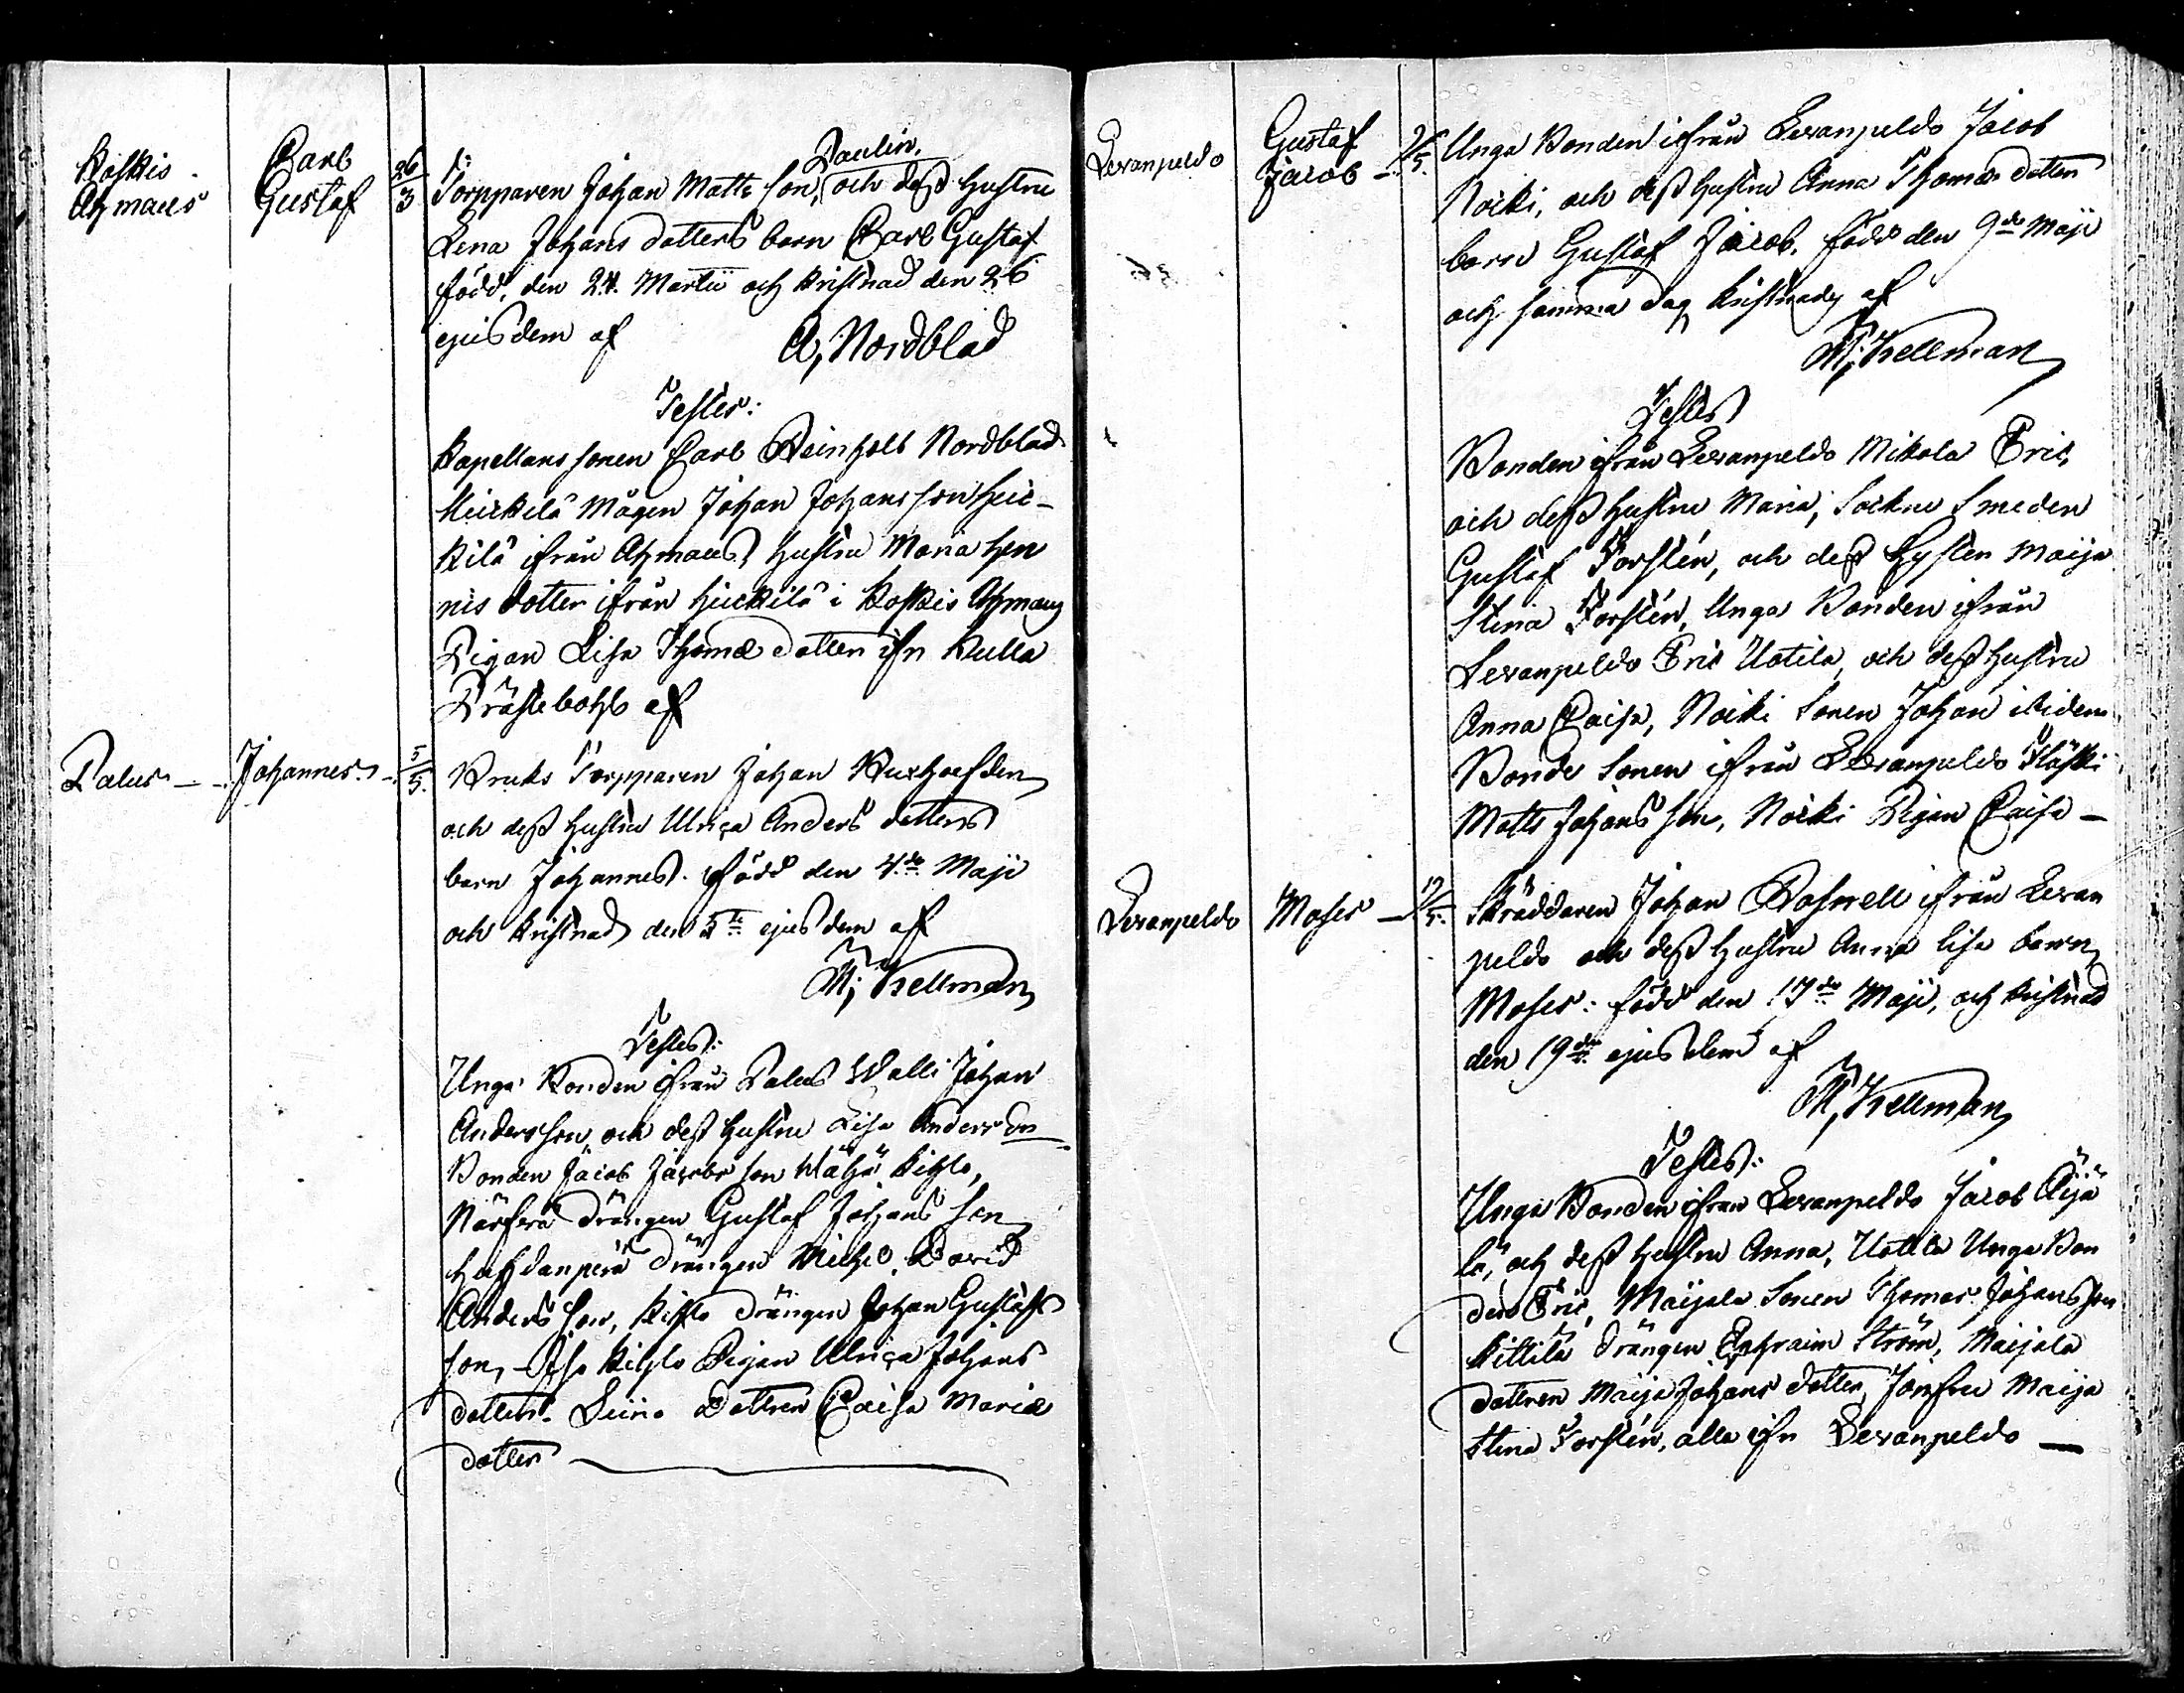 Koskis
Ahmaus
Carl
Gustaf
26
3
Paulin.
Torpparen Johan Matts son, och dess hustru
Lena Johans dotters barn Carl Gustaf
född, den 24. Martii och kristnad den 26
ejusdem af A, Nordblad
Testes:
Kapellans sonen Carl Reinholt Nordblad
Heickilä Mågen Johan Johans son Heic-
kilä ifrån Ahmaus, hustru Maria Hen
nis dotter ifrån Heickilä i Koskis Ahmaus
Pigan Lisa Thomæ dotter ifn Kulla
Prästebohl af
Palus
Johannes
5
5.
Bruks Torpparen Johan
och dess hustru Ulrica Anders dotters
barn Johannes. född den 4de Maji
och kristnad den 5te ejusdem af
M; Kellman
Testes:
Unga Bonden ifrån Palus Walli Johan
Anders son, och dess hustru Lisa Anders dr
Bonden Jacob Jacobs son Wähä Kihlo,
Närfvä drängen Gustaf Johans son
drängen Michel David
Anders son, Kihlo drängen Johan Gustafs
son, Iso Kihlo Pigan Ulrica Johans
dotter. dottren Caisa Mariæ
dotter
Levanpeldo
Gustaf
Jacob
5.
Unga Bonden ifrån Levanpeldo Jacob
Nocki, och dess hustru Anna Thomæ dotters
barn Gustaf Jacob, född den 9de Maji
och samma dag kristnad af
M; Kellman
Testes
Bonden ifrån Levanpeldo Mikola Eric,
och dess hustru Maria, Sockne Smeden
Gustaf Forstén, och dess Syster Maija
Stina Forstén, Unga Bonden ifrån
Levanpeldo Eric Uotila, och dess hustru
Anna Caisa, Nocki Sonen Johan ibidem
Bonde Sonen ifrån Levanpeldo
Matts Johans son, Nocki Pigan Caisa —
Levanpeldo
Moses
19
5.
Skräddaren Johan Rosnell ifrån Levan
peldo och dess hustru Anna Lisa barn
Moses: född den 17de Maji, och kristnad
den 19de ejusdem af
M, Kellman
Testes:
Unga Bonden ifrån Levanpeldo Jacob Äijä
lä, och dess hustru Anna, Uotila Unga Bon
den Eric, Maijala Sonen Thomas Johans son
Kittilä drängen Ephraim Ström, Maijala
dottren Maija Johans dotter, Jomfru Maija
Stina Forstén, alla ifn Levanpeldo —